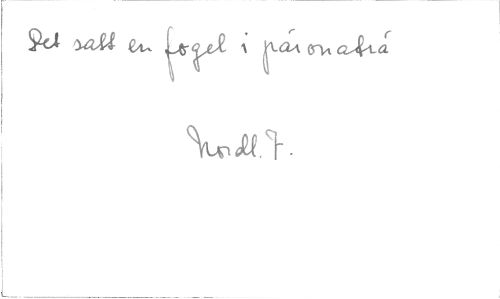 Det satt en fogel i päronaträ
Nordl. 7.